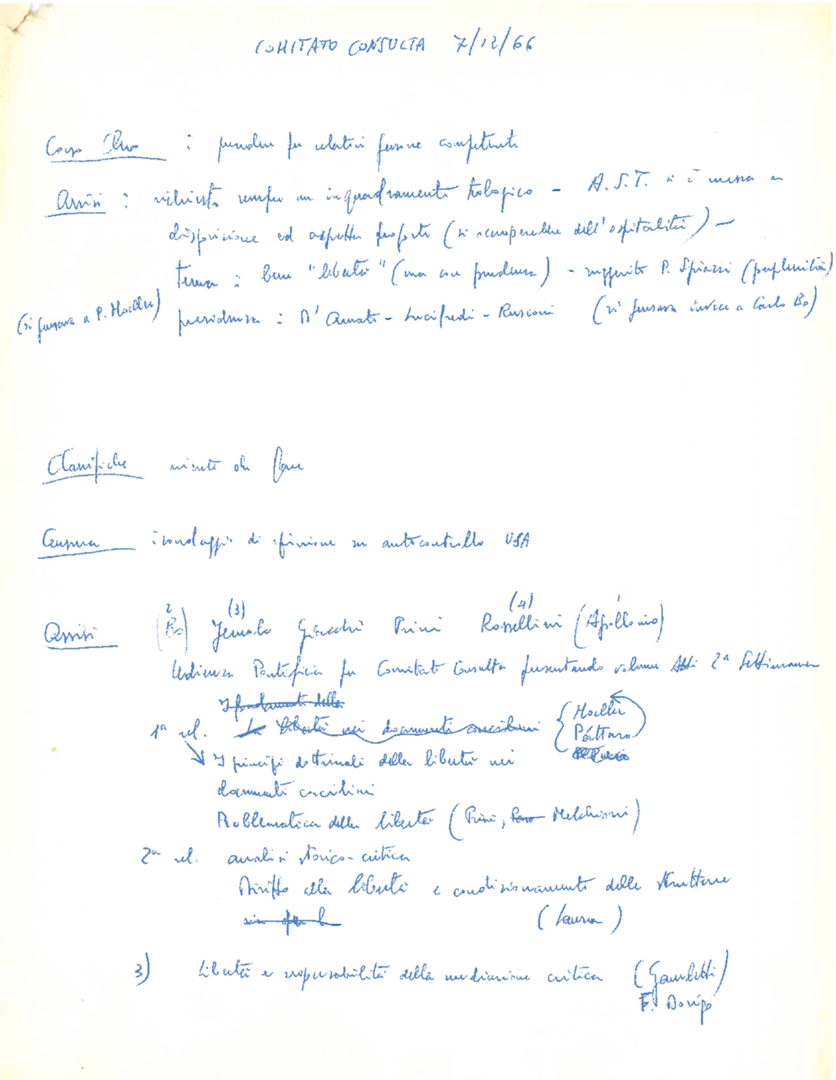 COMITATO CONSULTA 7/12/66
Corso : prendere per relatori persone competenti
Assisi : richiesta sempre un inquadramento teologico - A.S.T. si è messa a
disposizione ed aspetta proposte (si recupererebbe dell'ospitalità) -
tema : bene "libertà" (ma con prudenza) - suggerito P. Spiazzi (perplessità)
(si pensava a P. Moeller) presidenza : D'Amato - Lucifredi - Rusconi (si pensava invece a Carlo Bo)
Classifiche niente da fare
Censura sondaggi di opinione su autocontrollo USA
Assisi (Bo) 2 Jemolo (3) Giacchi Prini Rossellini (4) (Apollonio)
Udienza Pontificia per Comitato Consulta presentando volume Atti 2ª Settimana
I fondamenti della
1ª rel. La libertà nei documenti conciliari { Moeller
Pattaro
I principi dottrinali della libertà nei
documenti conciliari
Problematica della libertà (Prini, Melchiorre)
2ª rel. analisi storico-critica
Diritto alla libertà e condizionamento delle strutture
(Laura)
3) Libertà e responsabilità della mediazione critica (Gambetti)
F. Dorigo